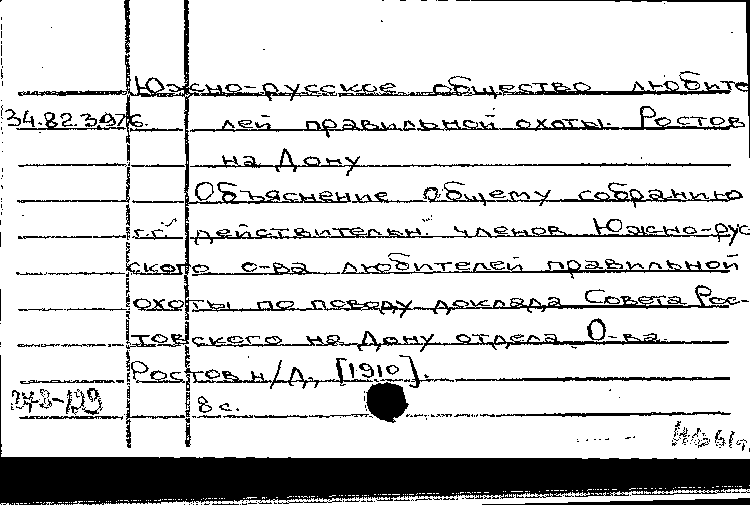 Южно-русское общество любите
34.82.3976. лей правильной охоты. Ростов
на Дону
Объяснение общему собранию
г.г. действительн. членов Южно-рус
ского о-ва любителей правильной
охоты по поводу доклада Совета Рос-
товского на Дону отдела О-ва.
Ростов н/Д., [1910].
248-129 8 с.